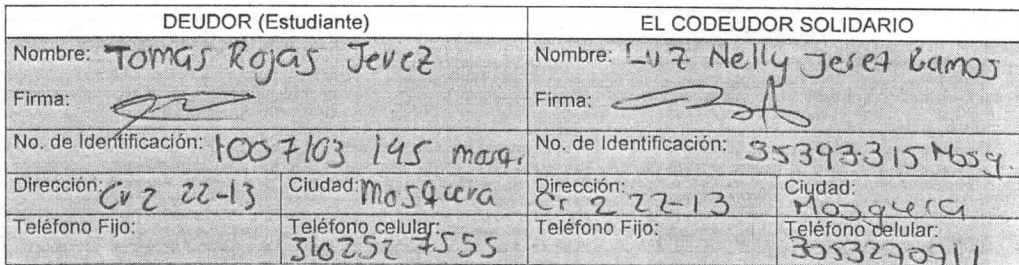 DEUDOR (Estudiante)
EL CODEUDOR SOLIDARIO
Nombre: Tomas Rojas Jevez
Nombre: Luz Nelly Jerez Gamos
Firma:
Firma:
No. de Identificación: 1007103 145 mosq.
No. de Identificación: 35393315 Mosq.
Dirección: Cr 2 22-13
Ciudad: Mosquera
Dirección: Cr 2 22-13
Ciudad: Mosquera
Teléfono Fijo:
Teléfono celular: 310252 7555
Teléfono Fijo:
Teléfono celular: 3053270711